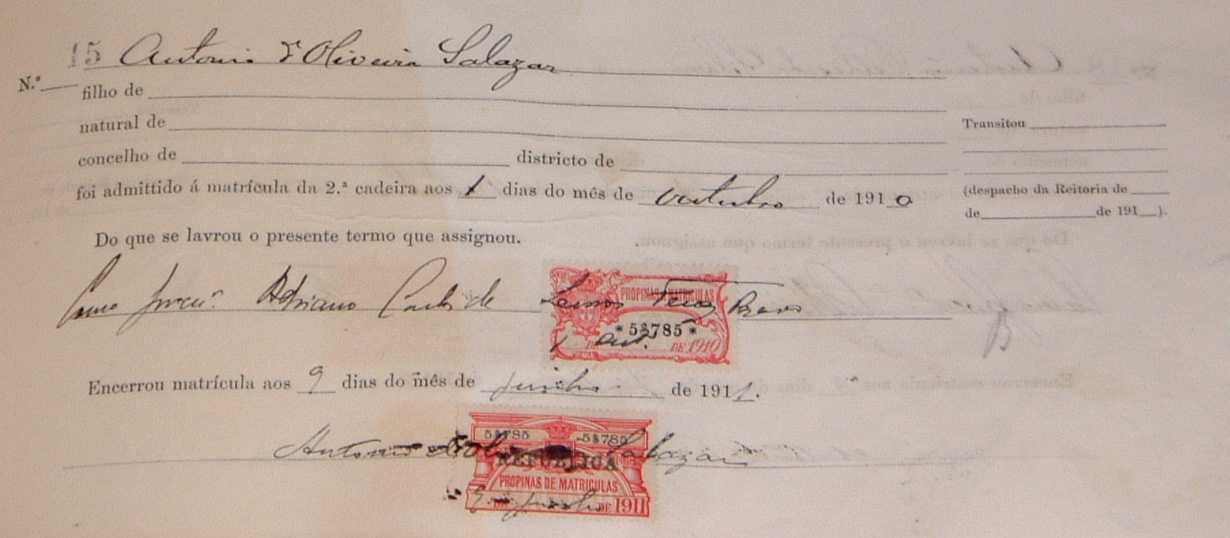 15 Antonio d'Oliveira Salazar
N.º
filho de
natural de
Transitou
concelho de districto de
foi admittido á matrícula da 2.ª cadeira aos 1 dias do mês de outubro de 1910
(despacho da Reitoria de
de de 191 ).
Do que se lavrou o presente termo que assignou.
Como procur. Adriano Carlos de Lemos
PROPINAS MATRICULAS
* 5$785 *
1 out. DE 1910
Encerrou matrícula aos 9 dias do mês de junho de 1911.
5$785 5$785
Antonio d'Ol Salazar
REPUBLICA
PROPINAS DE MATRICULAS
9 Junho DE 1911